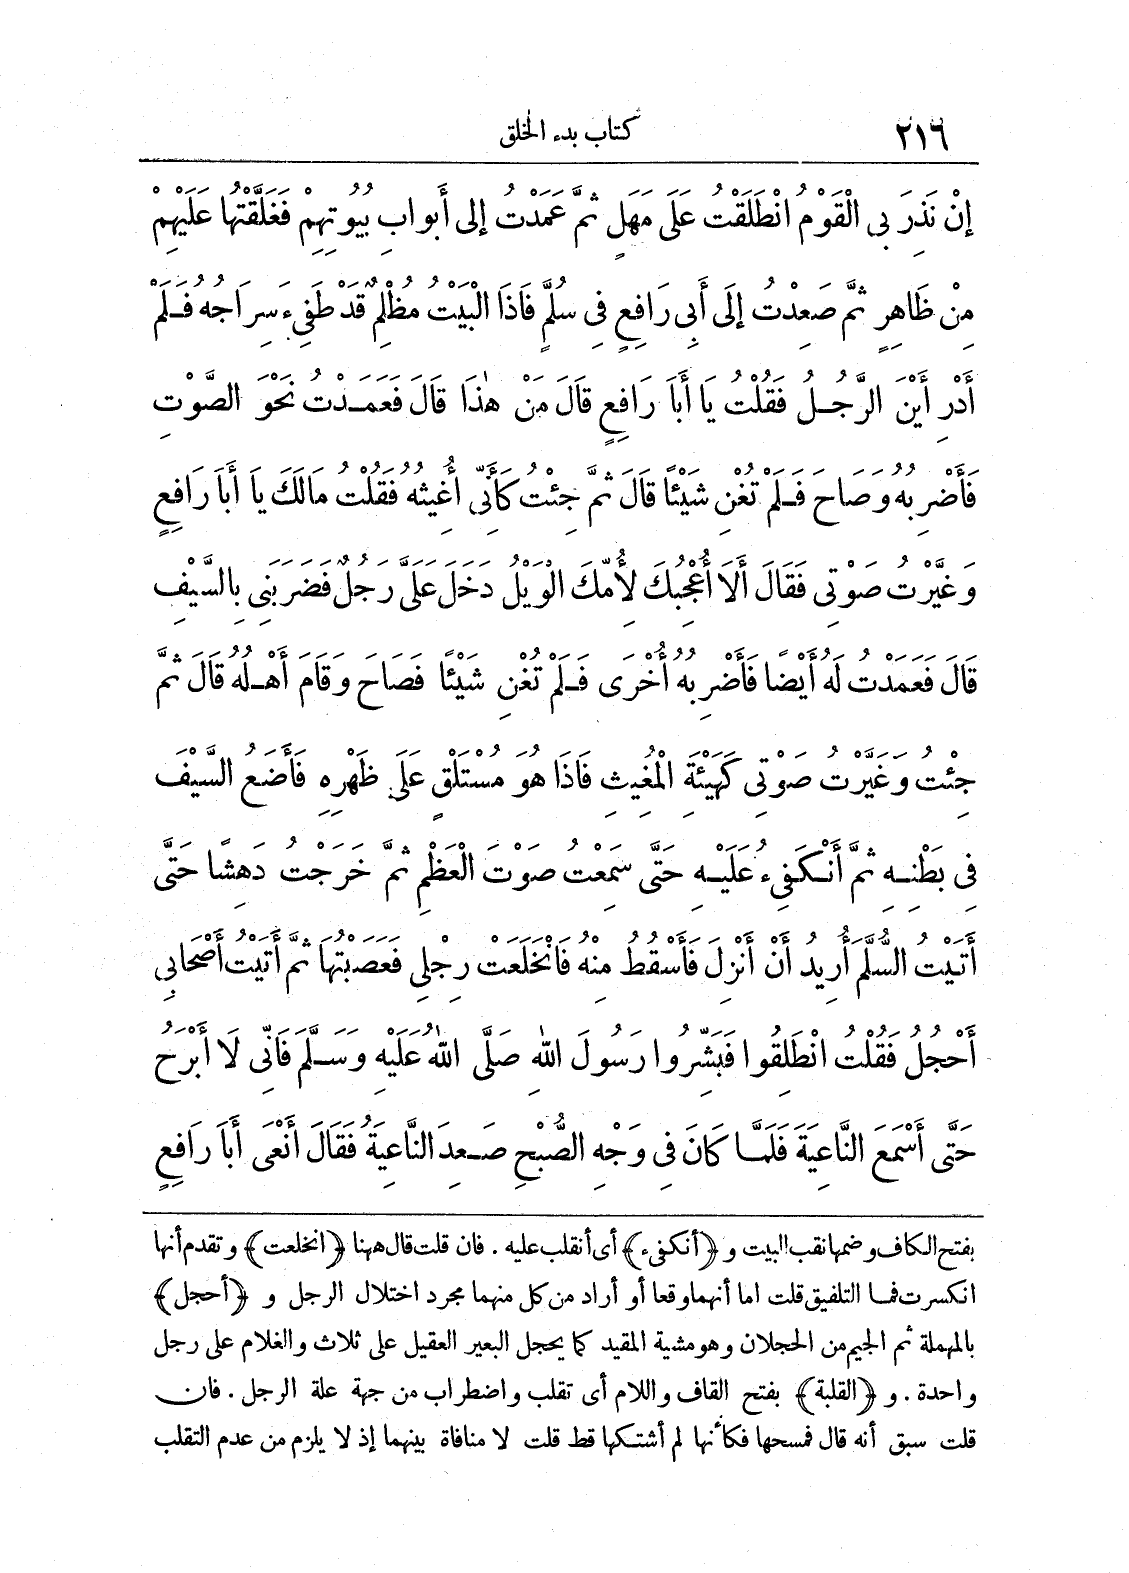 ٢١٦
كتاب بدء الخلق
إِنْ نَذِرَ بِي الْقَوْمُ انْطَلَقْتُ عَلَى مَهَلٍ ثُمَّ عَمَدْتُ إِلَى أَبْوَابِ بُيُوتِهِمْ فَغَلَّقْتُهَا عَلَيْهِمْ
مِنْ ظَاهِرٍ ثُمَّ صَعِدْتُ إِلَى أَبِي رَافِعٍ فِي سُلَّمٍ فَاذَا الْبَيْتُ مُظْلِمٌ قَدْ طَفِيءَ سِرَاجُهُ فَلَمْ
أَدْرِ أَيْنَ الرَّجُلُ فَقُلْتُ يَا أَبَا رَافِعٍ قَالَ مَنْ هٰذَا قَالَ فَعَمَدْتُ نَحْوَ الصَّوْتِ
فَأَضْرِبُهُ وَصَاحَ فَلَمْ تُغْنِ شَيْئًا قَالَ ثُمَّ جِئْتُ كَأَنِّي أُغِيثُهُ فَقُلْتُ مَالَكَ يَا أَبَا رَافِعٍ
وَغَيَّرْتُ صَوْتِي فَقَالَ أَلَا أُعْجِبُكَ لِأُمِّكَ الْوَيْلُ دَخَلَ عَلَيَّ رَجُلٌ فَضَرَبَنِي بِالسَّيْفِ
قَالَ فَعَمَدْتُ لَهُ أَيْضًا فَأَضْرِبُهُ أُخْرَى فَلَمْ تُغْنِ شَيْئًا فَصَاحَ وَقَامَ أَهْلُهُ قَالَ ثُمَّ
جِئْتُ وَغَيَّرْتُ صَوْتِي كَهَيْئَةِ الْمُغِيثِ فَاذَا هُوَ مُسْتَلْقٍ عَلَى ظَهْرِهِ فَأَضَعُ السَّيْفَ
فِي بَطْنِهِ ثُمَّ أَنْكَفِيءُ عَلَيْهِ حَتَّى سَمِعْتُ صَوْتَ الْعَظْمِ ثُمَّ خَرَجْتُ دَهِشًا حَتَّى
أَتَيْتُ السُّلَّمَ أُرِيدُ أَنْ أَنْزِلَ فَأَسْقُطُ مِنْهُ فَانْخَلَعَتْ رِجْلِي فَعَصَبْتُهَا ثُمَّ أَتَيْتُ أَصْحَابِي
أَحْجُلُ فَقُلْتُ انْطَلِقُوا فَبَشِّرُوا رَسُولَ اللهِ صَلَّى اللهُ عَلَيْهِ وَسَلَّمَ فَانِّي لَا أَبْرَحُ
حَتَّى أَسْمَعَ النَّاعِيَةَ فَلَمَّا كَانَ فِي وَجْهِ الصُّبْحِ صَعِدَ النَّاعِيَةُ فَقَالَ أَنْعَى أَبَا رَافِعٍ
بفتح الكاف وضمها نقب البيت و ﴿أنكفىء﴾ أى أنقلب عليه . فان قلت قال ههنا ﴿انخلعت﴾ وتقدم أنها
انكسرت فما التلفيق قلت اما أنهما وقعا أو أراد من كل منهما مجرد اختلال الرجل و ﴿أحجل﴾
بالمهملة ثم الجيم من الحجلان وهو مشية المقيد كما يحجل البعير العقيل على ثلاث والغلام على رجل
واحدة . و ﴿القلبة﴾ بفتح القاف واللام أى تقلب واضطراب من جهة علة الرجل . فان
قلت سبق أنه قال فمسحها فكأنها لم أشتكها قط قلت لا منافاة بينهما إذ لا يلزم من عدم التقلب